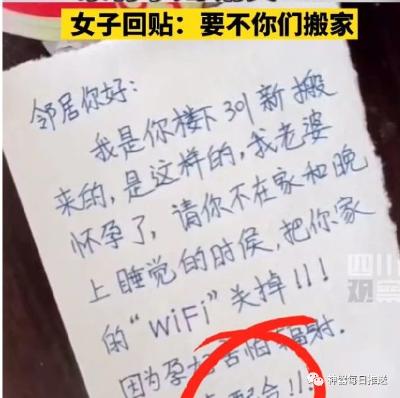 女子回贴：要不你们搬家
邻居你好：
我是你楼下301新搬
来的，是这样的，我老婆
怀孕了，请你不在家和晚
上睡觉的时侯，把你家
的“WiFi”关掉!!!
因为孕妇害怕辐射.
配合!!
四川
观察
神婆每日推送